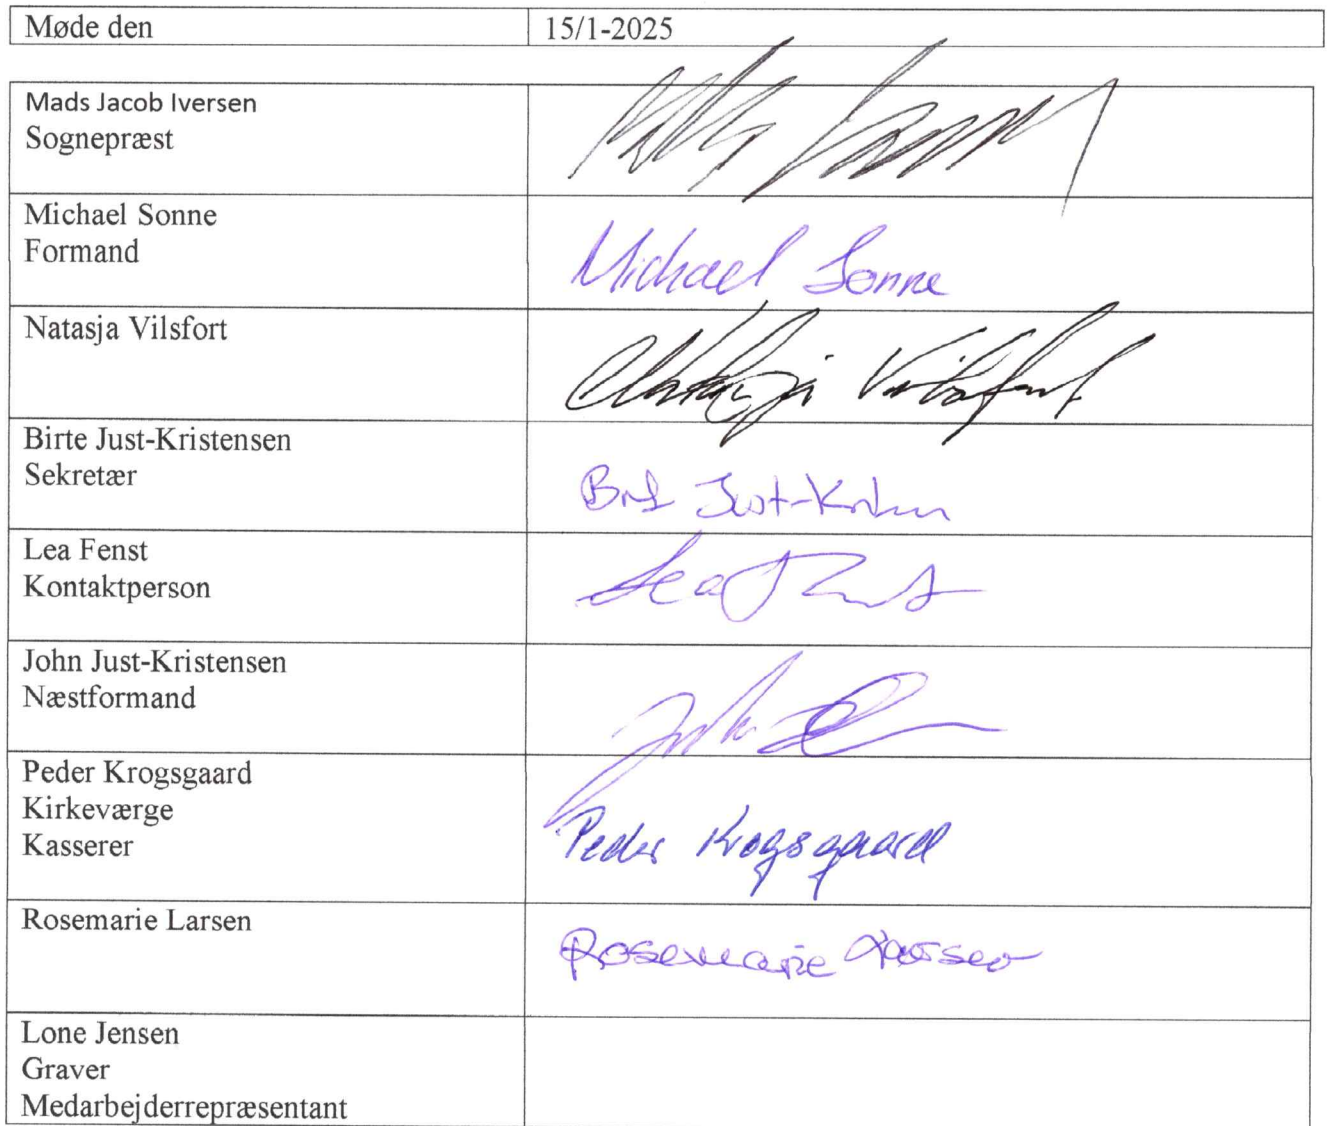 Møde den 15/1-2025
Mads Jacob Iversen
Sognepræst
Michael Sonne
Formand
Michael Sonne
Natasja Vilsfort
Natasja Vilsfort
Birte Just-Kristensen
Sekretær
Just-
Lea Fenst
Kontaktperson
Lea
John Just-Kristensen
Næstformand
Peder Krogsgaard
Kirkeværge
Kasserer
Peder Krogsgaard
Rosemarie Larsen
Rosemarie Larsen
Lone Jensen
Graver
Medarbejderrepræsentant